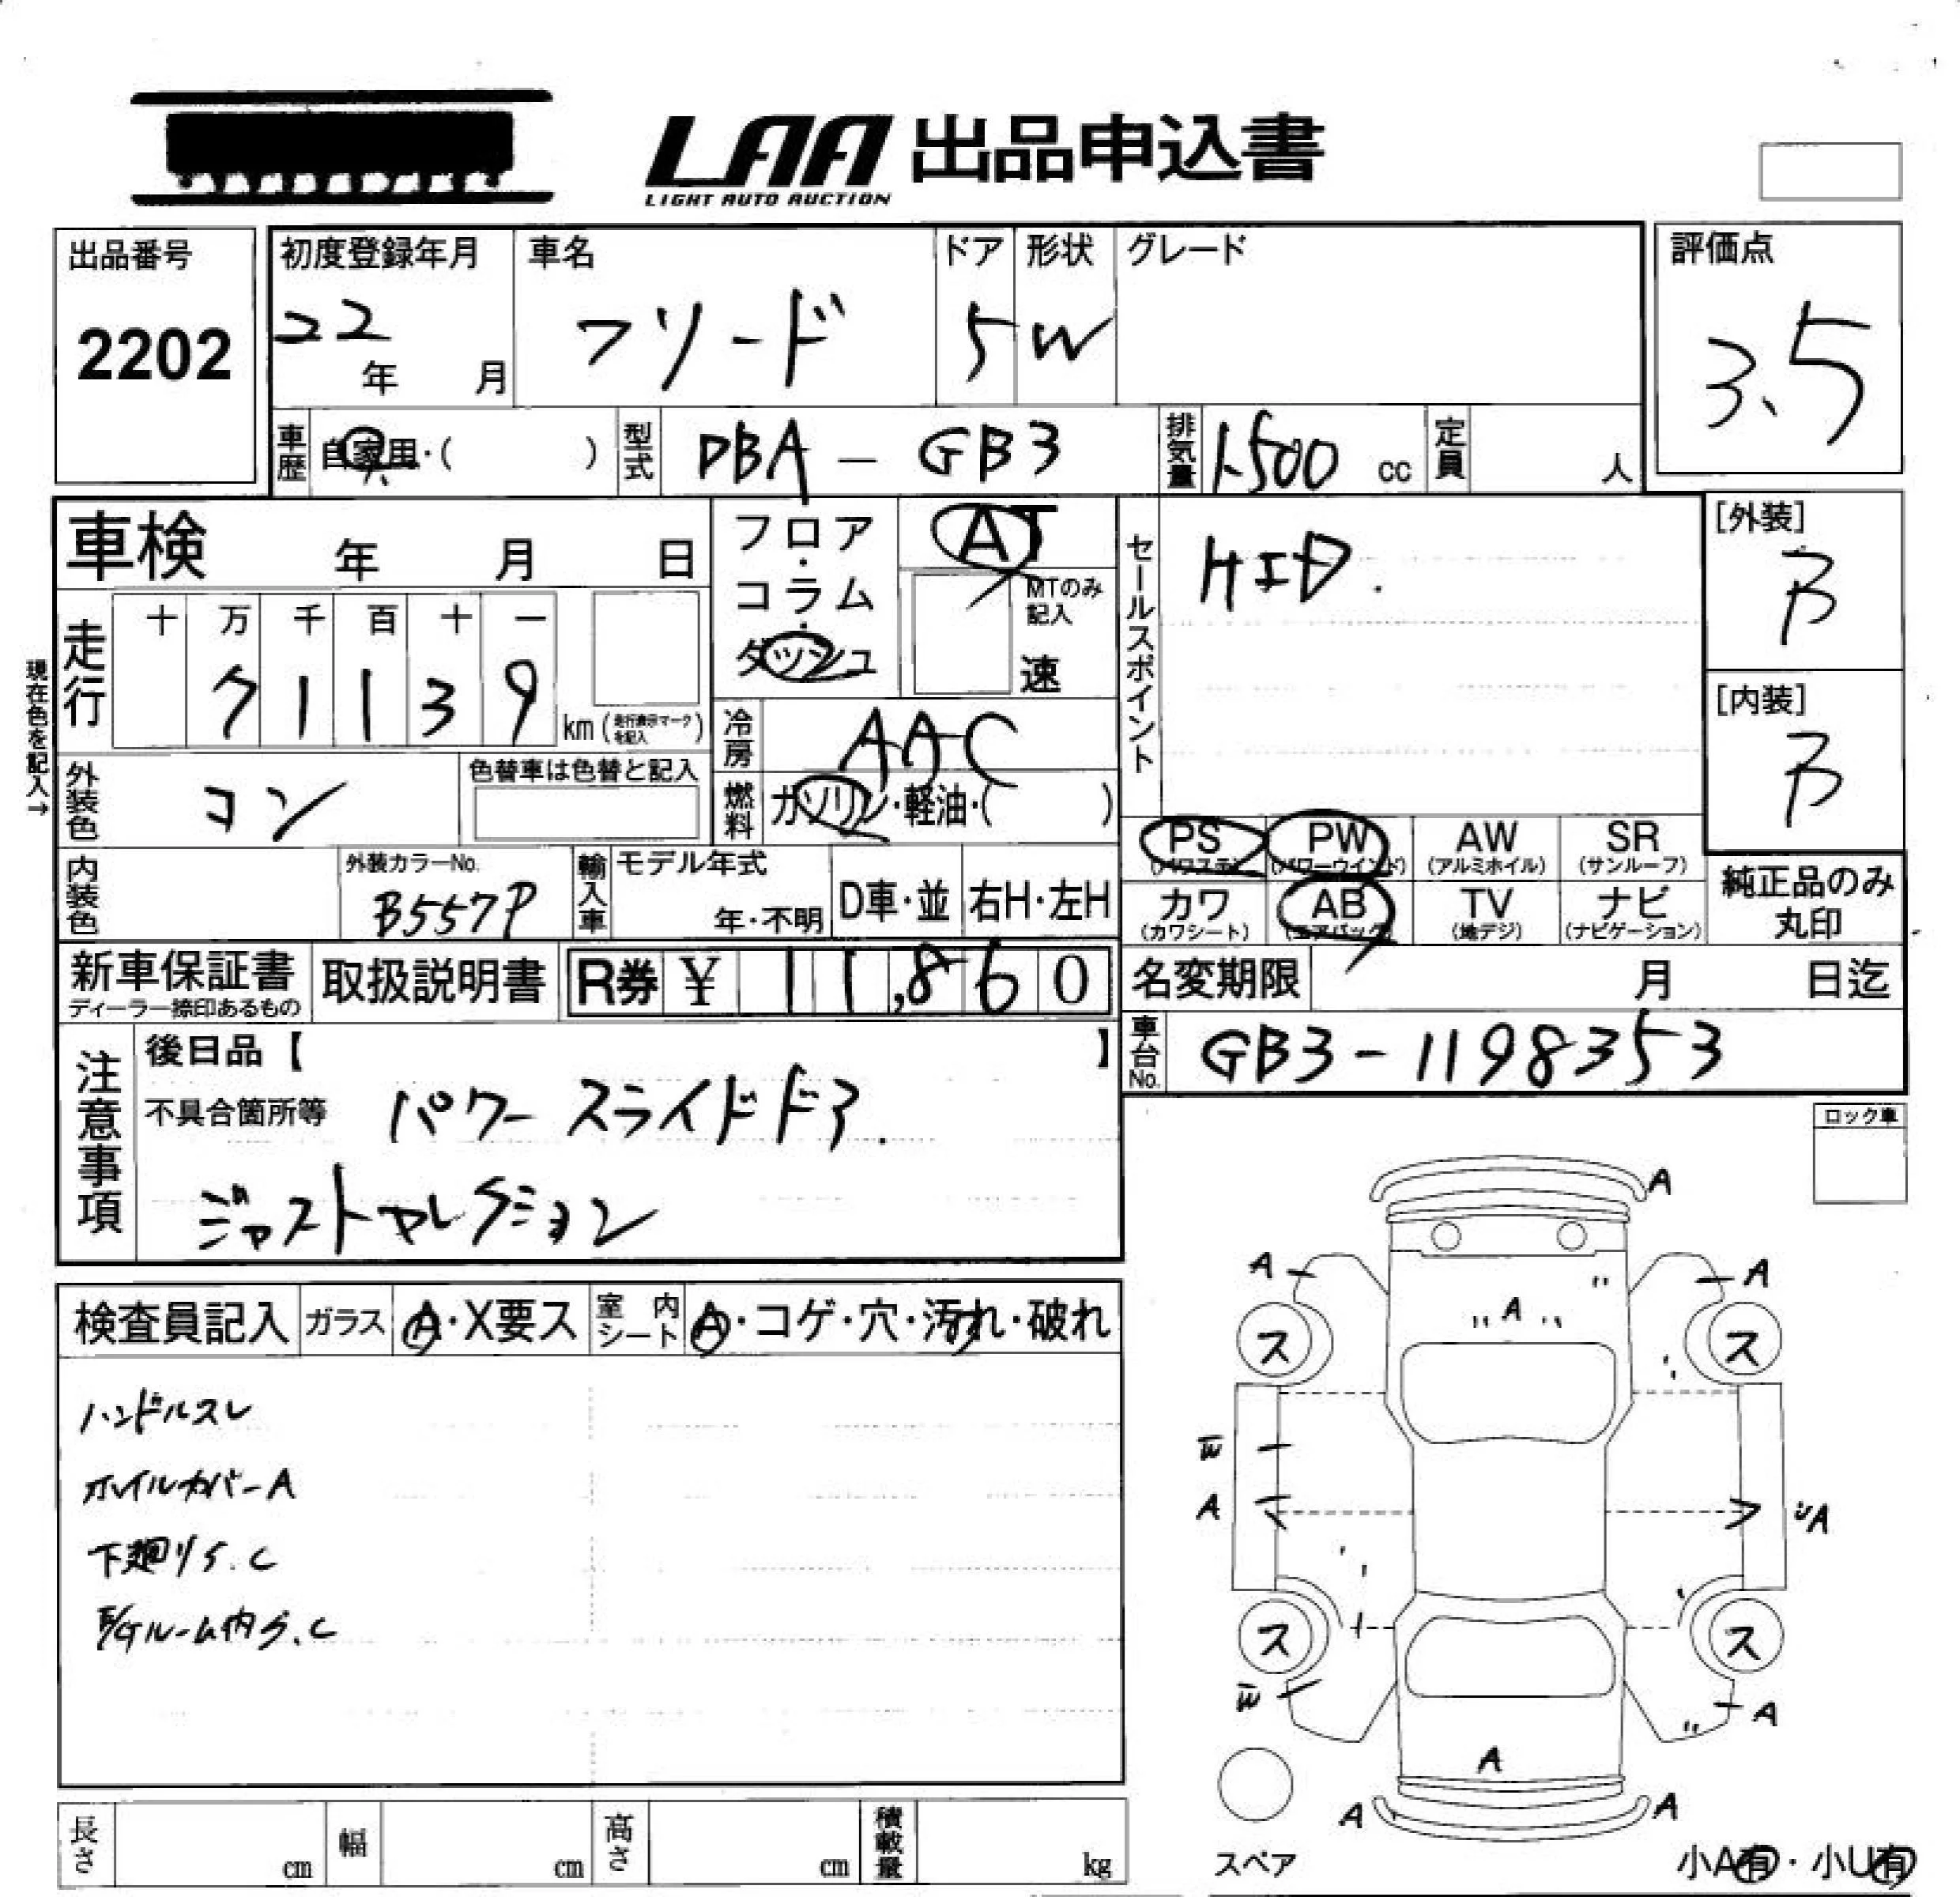 LAA 出品申込書
LIGHT AUTO AUCTION
出品番号
2202
初度登録年月
22
年 月
車名
フリード
ドア
5
形状
W
グレード
評価点
3.5
車歴
自家用・( )
型式
DBA - GB3
排気量
1500 cc
定員
人
車検 年 月 日
フロア・コラム・ダッシュ
AT
MTのみ記入
速
セールスポイント
HID.
[外装]
B
[内装]
B
現在色を記入→
走行
十 万 千 百 十 一
71139
km (走行表示マークを記入)
冷房
AAC
外装色
コン
色替車は色替と記入
燃料
ガソリン・軽油・( )
PS
(パワステ)
PW
(パワーウインド)
AW
(アルミホイル)
SR
(サンルーフ)
内装色
外装カラーNo.
B557P
輸入車
モデル年式
年・不明
D車・並
右H・左H
カワ
(カワシート)
AB
(エアバック)
TV
(地デジ)
ナビ
(ナビゲーション)
純正品のみ
丸印
新車保証書
ディーラー捺印あるもの
取扱説明書
R券 ¥ 11,860
名変期限 月 日迄
注意事項
後日品【 】
不具合箇所等
パワースライドドア.
ジャストセレクション
車台No.
GB3-1198353
ロック車
検査員記入
ガラス
A・X要ス
室内シート
A・コゲ・穴・汚れ・破れ
ハンドルスレ
ホイルカバーA
下廻りS.C
E/Gルーム内S.C
A
A
A
A
ス
ス
W
A
A
ス
ス
W
A
A
A
A
スペア
小A有・小U有
長さ cm
幅 cm
高さ cm
積載量 kg